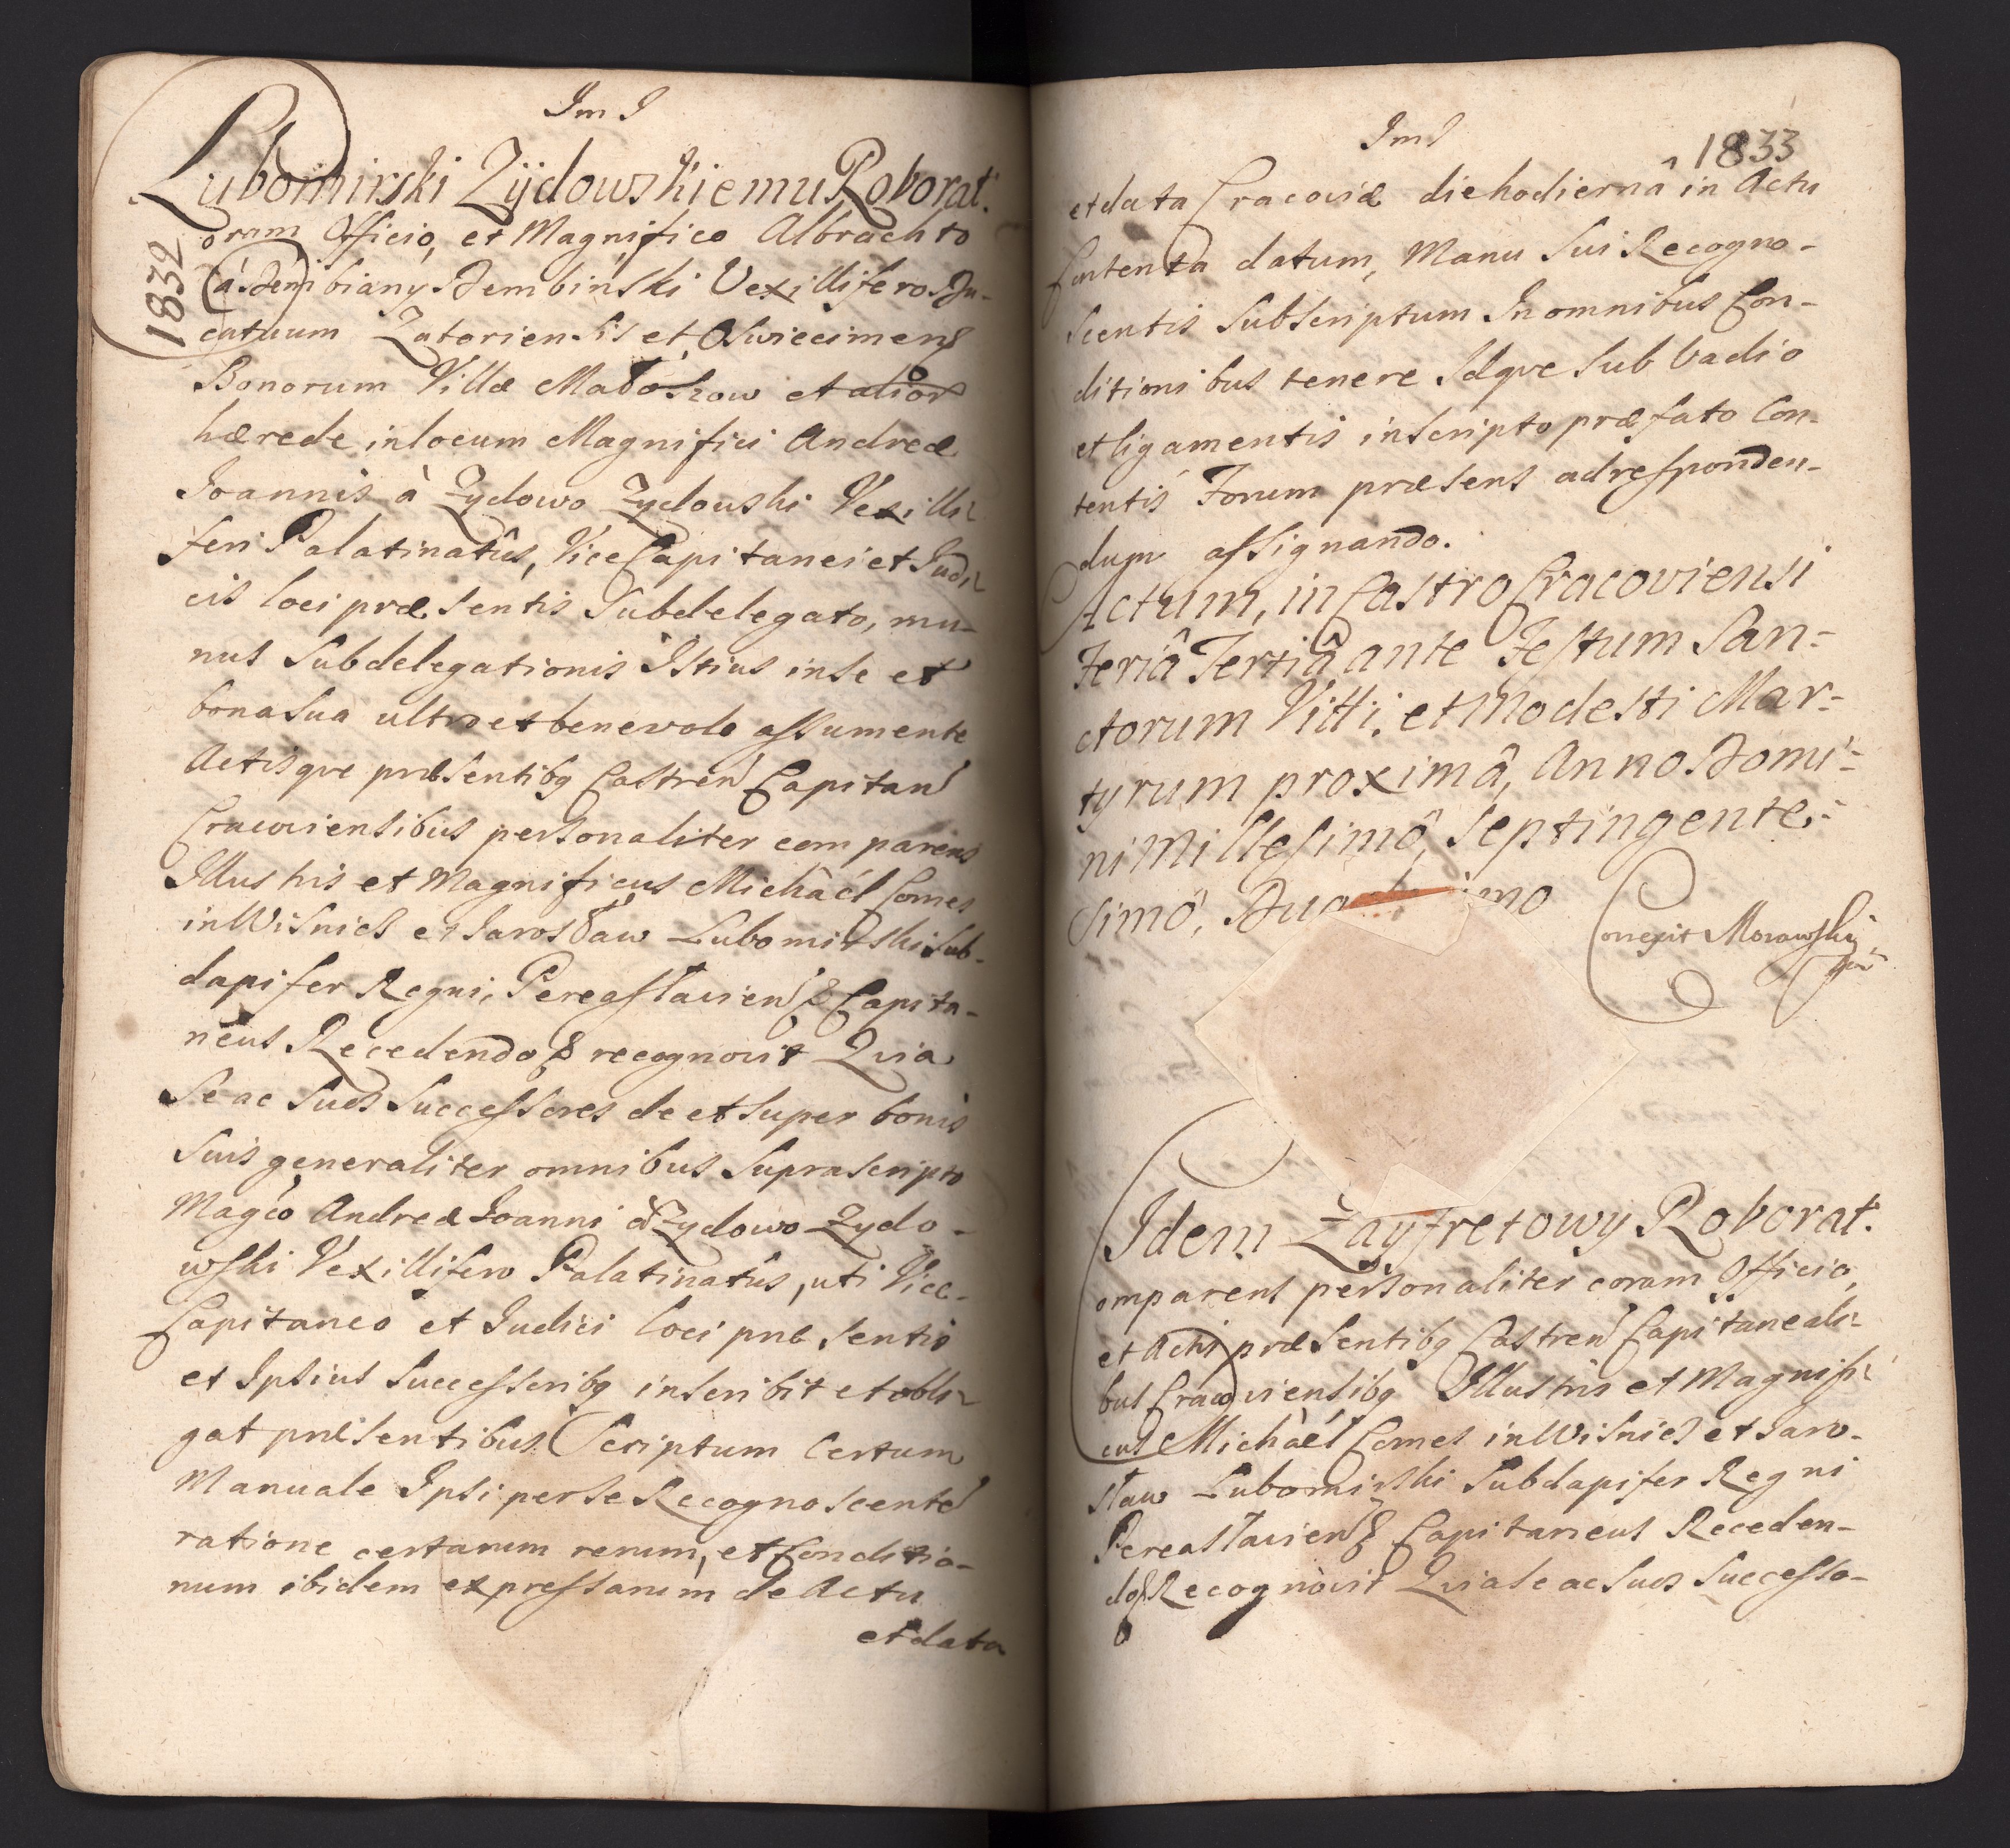 Im J
Lubomirski Zÿdowskiemu Roborat.
1832
Coram Officio, et Magnifico Albrachto
á Dembiany Dembinski Vexillifero Du-
catuum Zatoriensis et Oswiecimens
Bonorum Villæ Maboszow et alior
hærede in locum Magnifici Andreæ
Joannis à Zydowo Zydowski Vexilli-
feri Palatinatûs, Vice Capitanei et Judi-
cis loci præsentis Subdelegato, mu-
nus Subdelegationis Istius in se et
bona sua ultro et benevole assumente
Actisqve præsentibq Castren Capitan
Cracoviensibus personaliter comparens
Illustris et Magnificus Michàél Comes
in Wisnicz et Jarosław Lubomirski Sub-
dapifer Regni, Pereasłavien & Capita-
neus Recedendo & recognovit Qvia
Se ac Suos Successores de et super bonis
Suis generaliter omnibus Suprascripto
Magco Andreæ Joanni à Zydowo Zydo-
wski Vexillifero Palatinatûs, uti Vice-
Capitaneo et Judici loci præsentis
et Ipsius Successoribq inscribit et obli-
gat præsentibus Scriptum Certum
Manuale Ipsi per se Recognoscente
ratione certarum rerum, et Conditio-
num ibidem expressarum de Actu
et data
Im J
1833
et data Cracoviæ die hodiernâ in Actu
Contenta datum, Manu Sui Recogno-
scentis Subscriptum In omnibus Con-
ditionibus tenere Idqve Sub Vadio
et ligamentis inscripto præfato Con-
tentis Forum præsens ad responden-
dum assignando.
Actum, in Castro Cracoviensi
Feriâ Tertiâ ante Festum San-
ctorum Vitti, et Modesti Mar-
tyrum proximâ, Anno Domi-
ni Millesimô, Septingente-
simô, mo
Correxit Morawski
mp
Idem Zayfretowy Roborat.
Comparens personaliter coram Officio,
et Actis præsentibq Castren Capitaneali-
bus Cracoviensibq Illustris et Magnifi-
cus Michàél Comes in Wisnicz et Jaro-
sław Lubomirski Subdapifer Regni
Pereasłavien & Capitaneus Receden-
do & Recognovit Qvia Se ac Suos Successo-